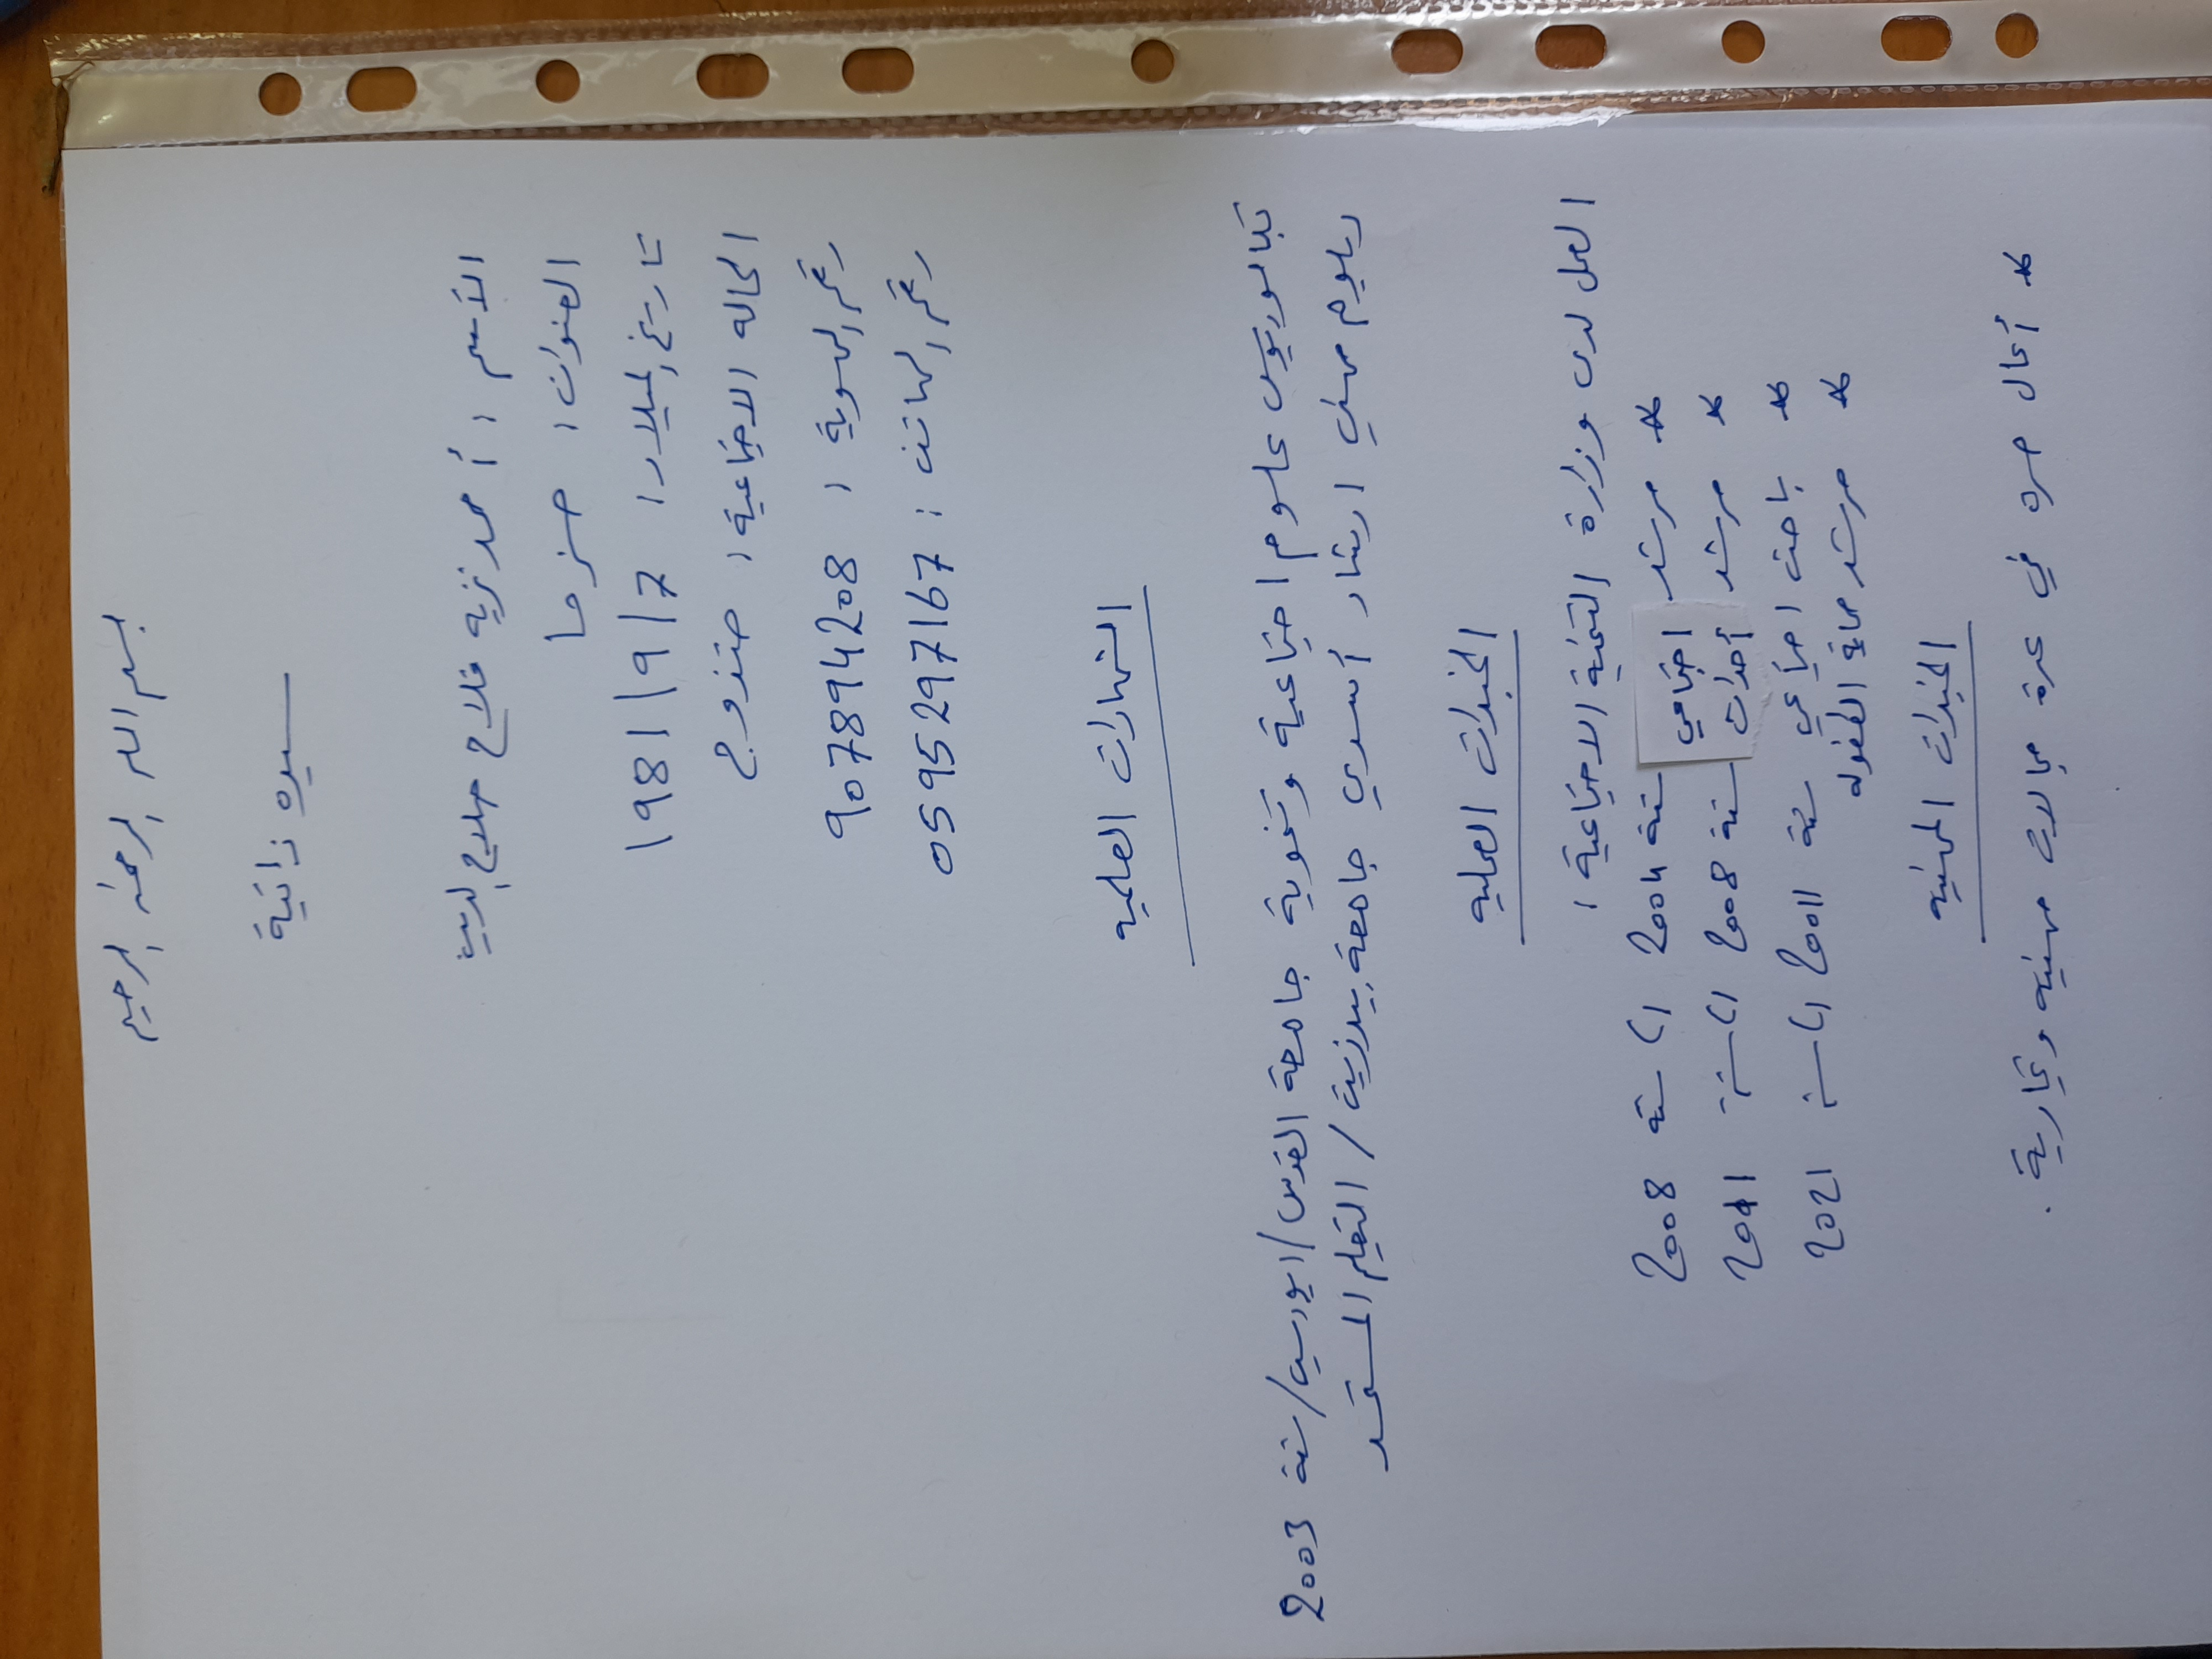 بسم الله الرحمن الرحيم
سيره ذاتية
الاسم : أحمد نزيه فلاح صلاح الدين
العنوان : حزما
تاريخ الميلاد : 1981/9/7
الحاله الاجتماعية : متزوج
رقم الهوية : 907894208
رقم الهاتف : 0595297167
الشهادات العلميه
بكالوريوس علوم اجتماعية وتربوية جامعة القدس / ابوديس / سنة 2003
دبلوم مهني ارشاد أسري جامعة بيرزيت / التعليم المستمر
الخبرات العمليه
العمل لدى وزارة التنمية الاجتماعية :
* مرشد اجتماعي سنة 2004 الى سنة 2008
* مرشد أحداث سنة 2008 الى سنة 2011
* باحث اجتماعي سنة 2011 الى سنة 2021
* مرشد حماية الطفوله
الخبرات المهنيه
* أعمال حره في عدة مجالات مهنيه وتجارية .